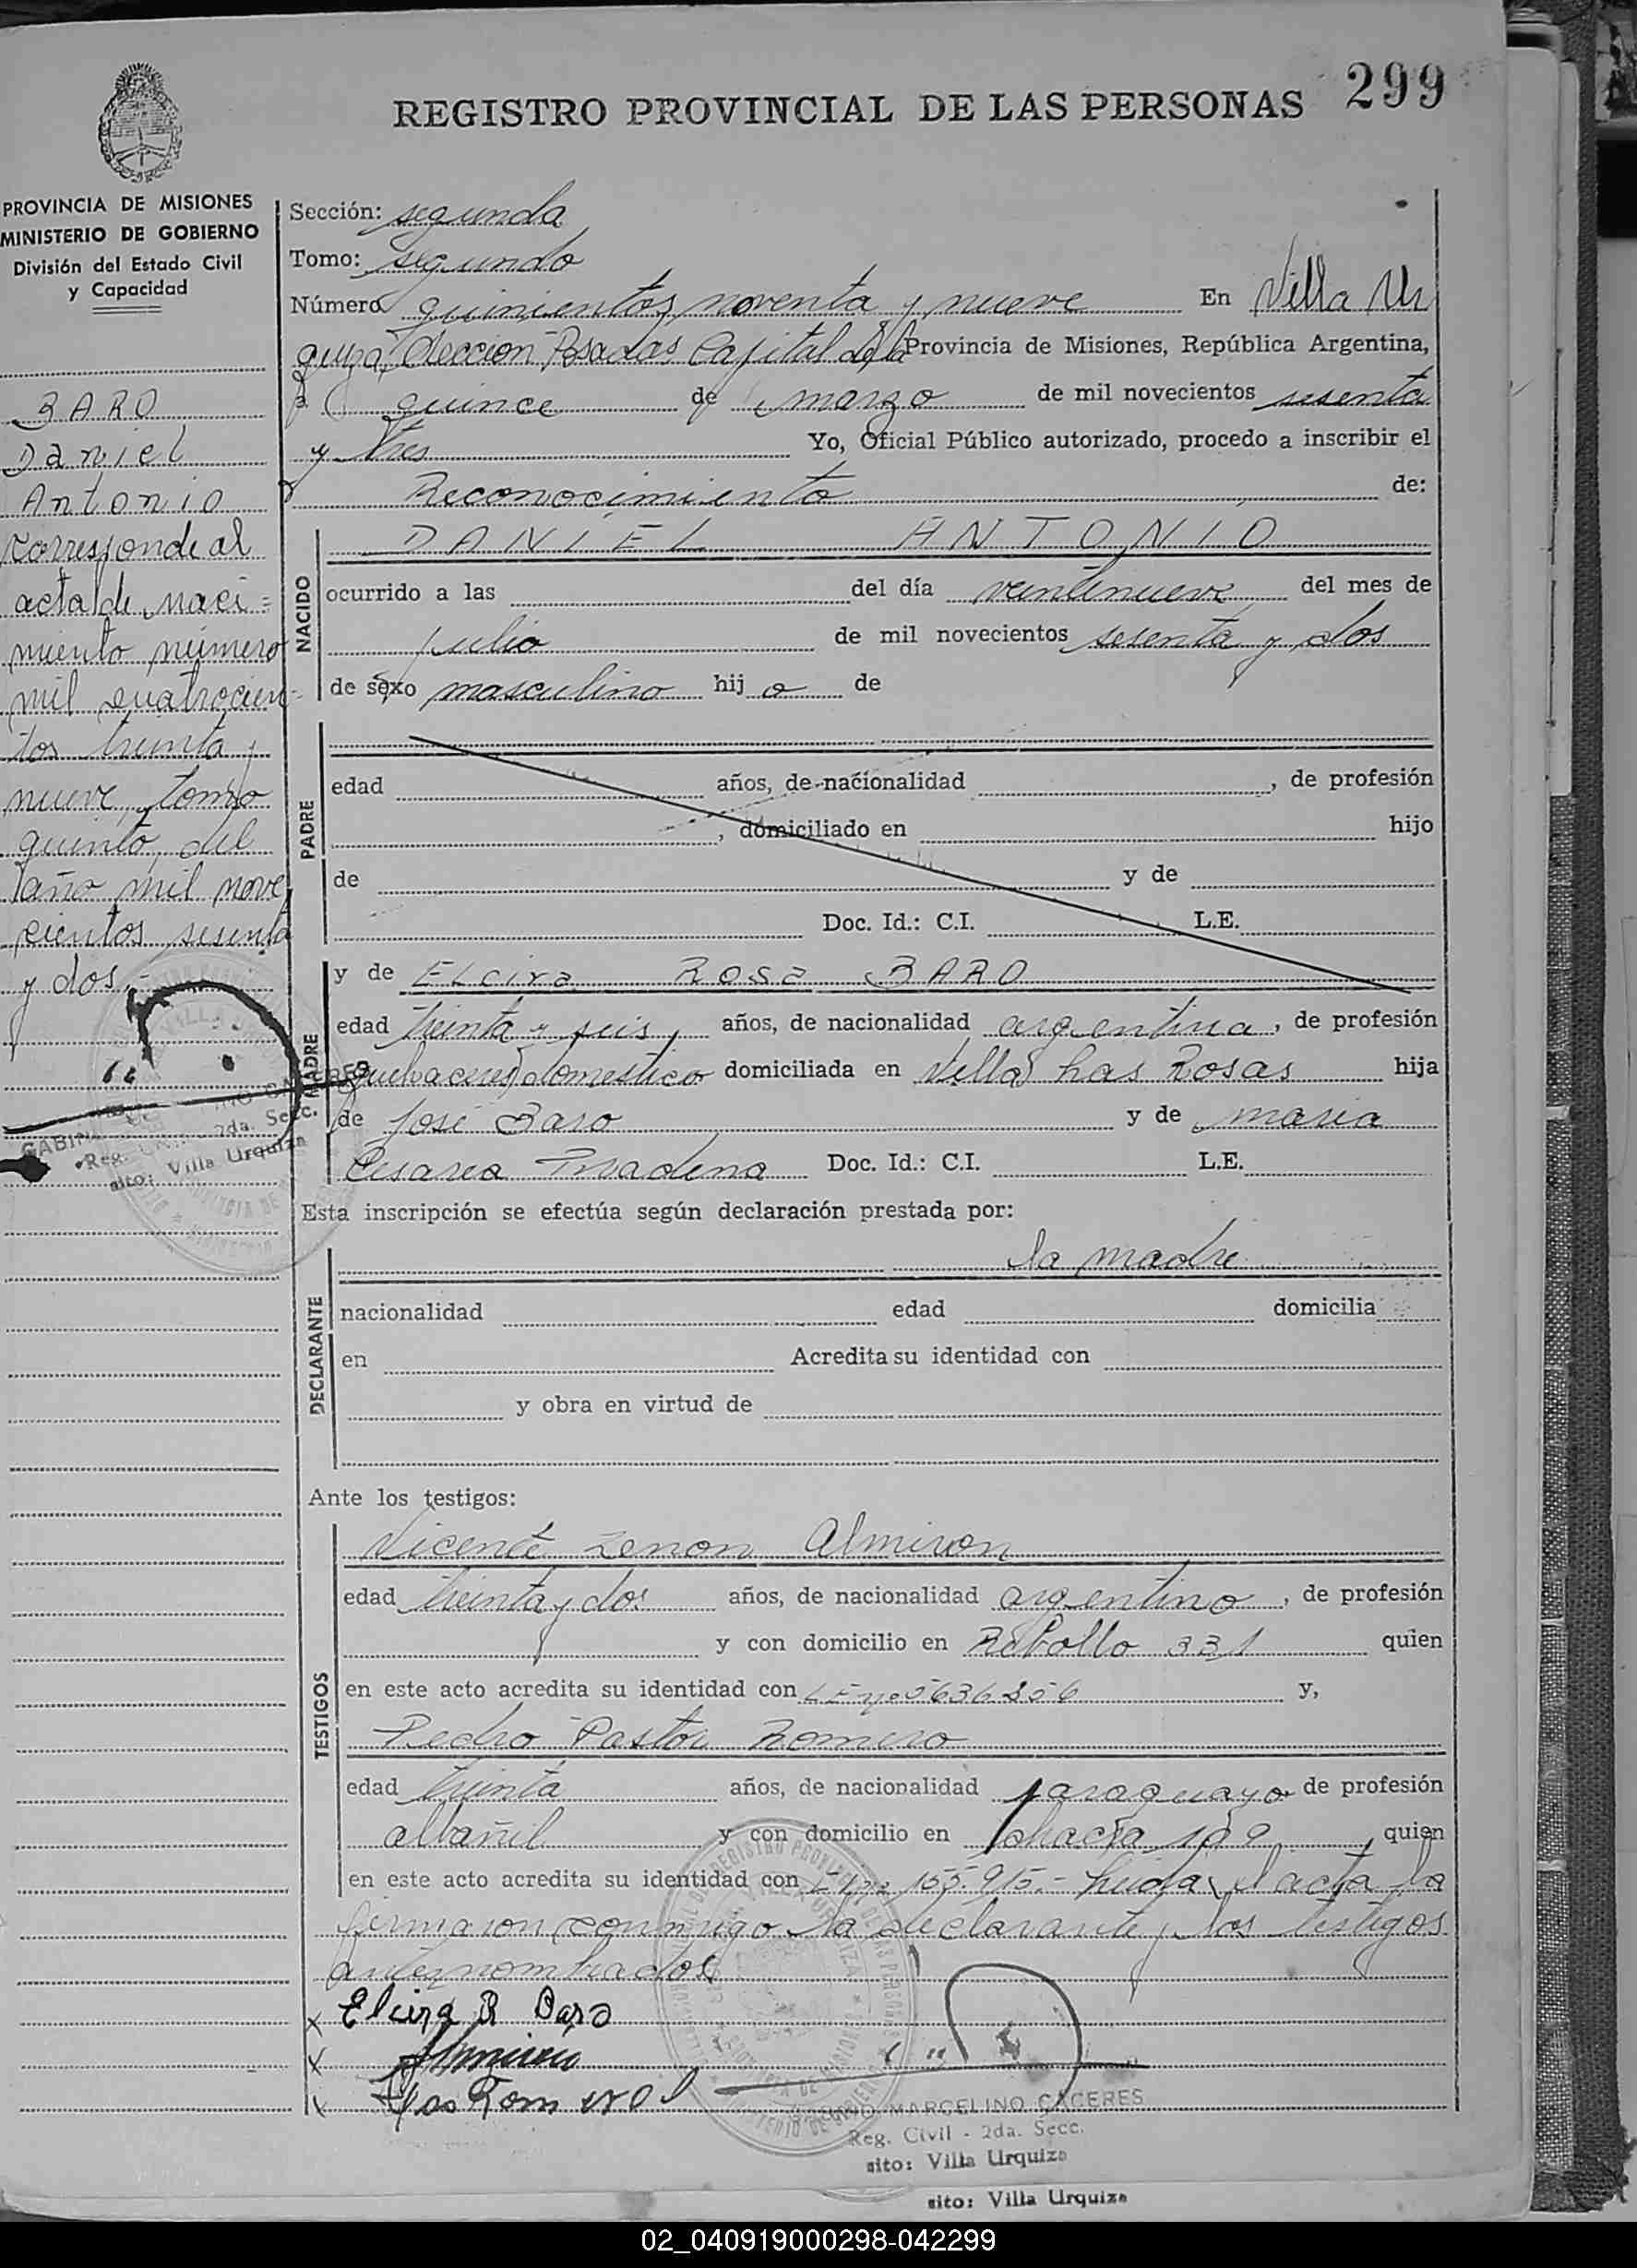 REGISTRO PROVINCIAL DE LAS PERSONAS 299
PROVINCIA DE MISIONES
MINISTERIO DE GOBIERNO
División del Estado Civil
y Capacidad
BARO
Daniel
Antonio
corresponde al
acta de naci=
miento número
mil cuatrocien=
tos treinta y
nueve, tomo
quinto, del
año mil nove
cientos sesenta
y dos.-
Sección: segunda
Tomo: segundo
Número quinientos noventa y nueve En Villa Ur
quiza, Seccion Posadas Capital de la Provincia de Misiones, República Argentina,
a quince de marzo de mil novecientos sesenta
y tres Yo, Oficial Público autorizado, procedo a inscribir el
Reconocimiento de:
NACIDO
DANIEL ANTONIO
ocurrido a las del día veintinueve del mes de
julio de mil novecientos sesenta y dos
de sexo masculino hij o de
PADRE
edad años, de nacionalidad , de profesión
, domiciliado en hijo
de y de
Doc. Id.: C.I. L.E.
MADRE
y de ELcira Rosa BARO
edad treinta y seis, años, de nacionalidad argentina, de profesión
quehaceres domestico domiciliada en Villa Las Rosas hija
de José Baro y de maria
Cesarea Doc. Id.: C.I. L.E.
Esta inscripción se efectúa según declaración prestada por:
DECLARANTE
la madre
nacionalidad edad domicilia
en Acredita su identidad con
y obra en virtud de
Ante los testigos:
TESTIGOS
Vicente Zenon Almiron
edad treinta y dos años, de nacionalidad argentino, de profesión
y con domicilio en Rebollo 331 quien
en este acto acredita su identidad con LE nº 5636856 y,
Pedro Pastor Romero
edad treinta años, de nacionalidad paraguayo de profesión
albañil y con domicilio en chacra 189, quien
en este acto acredita su identidad con 155.915.- Leida el acta la
firmaron conmigo la declarante y los testigos
antes nombrados
x Elcira R Baro
x Almiron
x Romero
MARCELINO CACERES
Reg. Civil - 2da. Secc.
sito: Villa Urquiza
sito: Villa Urquiza
Reg. 2da. Secc.
sito: Villa Urquiza
02_040919000298-042299